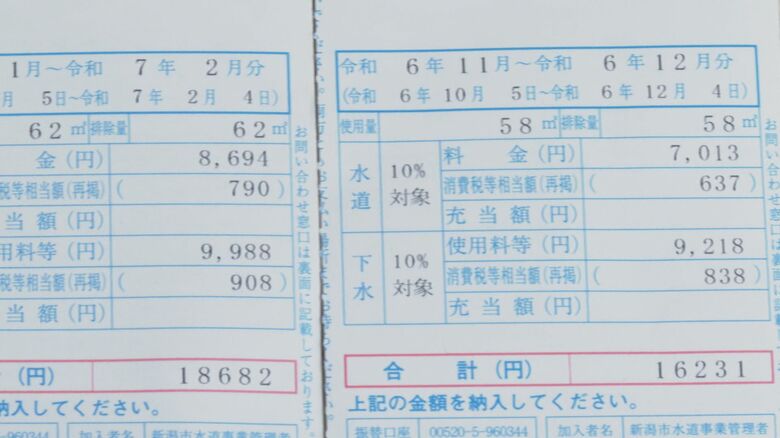 1月～令和 7年 2月分
月 5日～令和 7年 2月 4日)
62㎥ 排除量 62㎥
金(円) 8,694
税等相当額(再掲) ( 790)
当額(円)
用料等(円) 9,988
税等相当額(再掲) ( 908)
当額(円)
(円) 18682
納入してください。
5-960344 加入者名 新潟市水道事業管理者
お問い合わせ窓口は裏面に記載しております。
令和 6年 11月～令和 6年 12月分
(令和 6年 10月 5日～令和 6年 12月 4日)
使用量 58㎥ 排除量 58㎥
水道 10%対象 料金(円) 7,013
消費税等相当額(再掲) ( 637)
充当額(円)
下水 10%対象 使用料等(円) 9,218
消費税等相当額(再掲) ( 838)
充当額(円)
合計(円) 16231
上記の金額を納入してください。
振替口座 00520-5-960344 加入者名 新潟市水道事業管理者
お問い合わせ窓口は裏面に